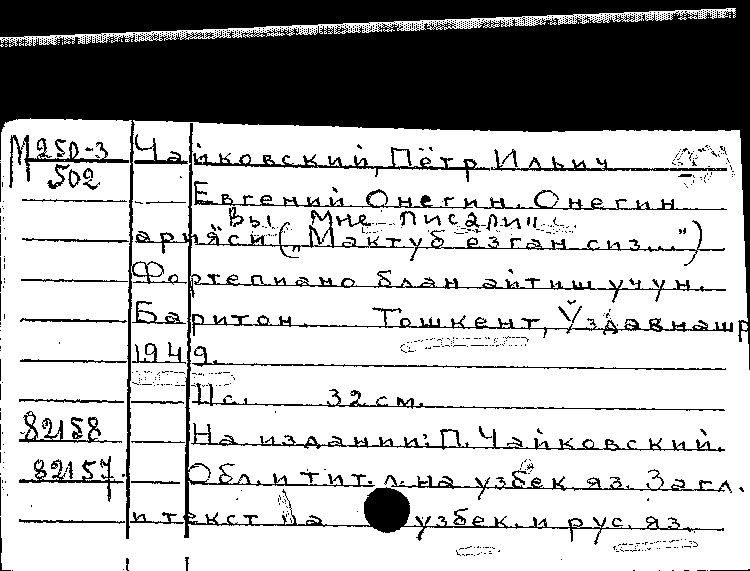 М 250-3 Чайковский, Пётр Ильич
502
Евгений Онегин. Онегин
Вы мне писали...
арияси („Мактуб езган сиз...")
Фортепиано блан айтиш учун.
Баритон. Тошкент, Ўздавнашр
1949.
11с. 32 см.
82158 На издании: П. Чайковский.
82157 Обл. и тит. л. на узбек. яз. Загл.
и текст на узбек. и рус. яз.